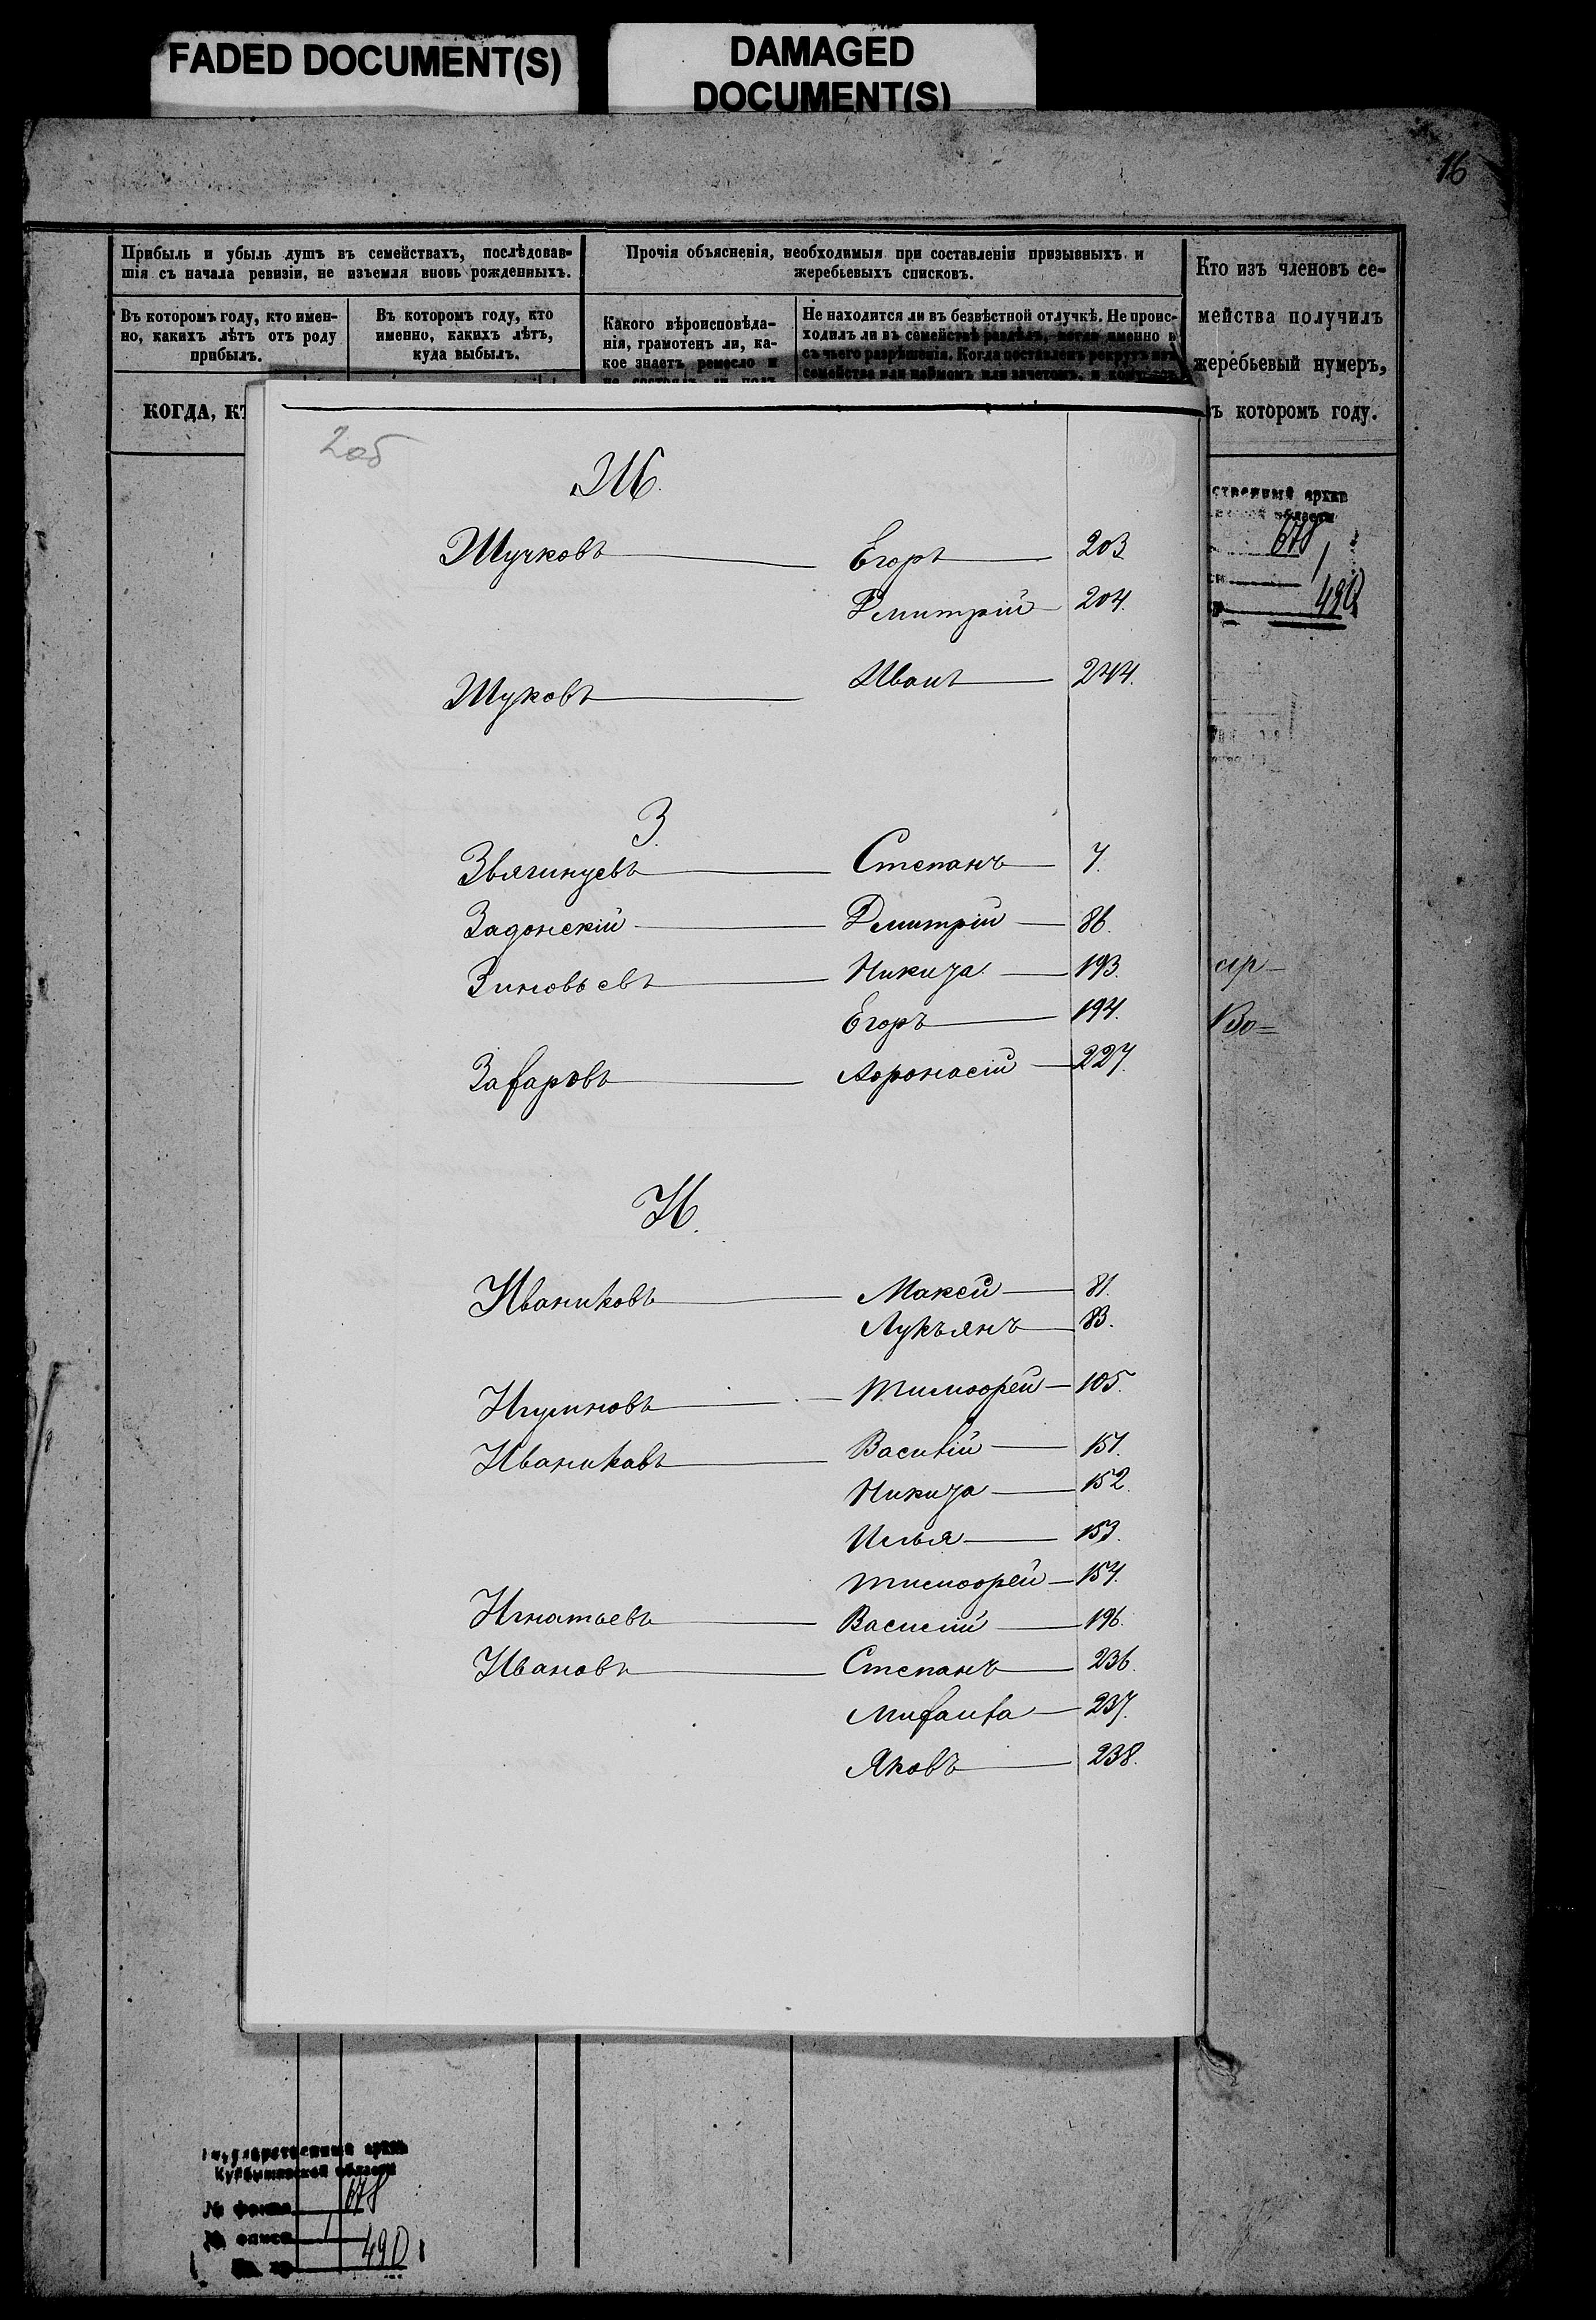 FADED DOCUMENT(S)
DAMAGED
DOCUMENT(S)
16
Прибыль и убыль душъ въ семействахъ, послѣдовав-
шія съ начала ревизіи, не изъемля вновь рожденныхъ.
Прочія объясненія, необходимыя при составленіи призывныхъ и
жеребьевыхъ списковъ.
Кто изъ членовъ се-
мейства получилъ
жеребьевый нумеръ,
въ которомъ году.
Въ которомъ году, кто имен-
но, какихъ лѣтъ отъ роду
прибылъ.
Въ которомъ году, кто
именно, какихъ лѣтъ,
куда выбылъ.
Какого вѣроисповѣда-
нія, грамотенъ ли, ка-
кое знаетъ ремесло и
не состоялъ ли подъ
Не находится ли въ безвѣстной отлучкѣ. Не проис-
ходилъ ли въ семействѣ раздѣлъ, когда именно и
съ чьего разрѣшенія. Когда поставленъ рекрутъ изъ
семейства или наймомъ или зачетомъ, и
КОГДА, КТ
2об
Ж.
Жучковъ Егоръ 203
Дмитрій 204.
Жуковъ Иванъ 244.
З.
Звягинцевъ Степанъ 7.
Задонскій Дмитрій 86.
Зиновьевъ Никита 193.
Егоръ 194.
Захаровъ Афонасій 227.
И.
Иваниковъ Максей 81.
Лукъянъ 83.
Игумновъ Тимофей 105.
Иваникавъ Василій 151.
Никита 152.
Илья 153.
Тимофей 154.
Игнатьевъ Василій 196.
Ивановъ Степанъ 236.
Михаила 237.
Яковъ 238.
ственный архив
области
678
1
490
ар-
Во=
Государственный архив
Куйбышевской области
№ фонда 678
№ описи 1
№ хр 490